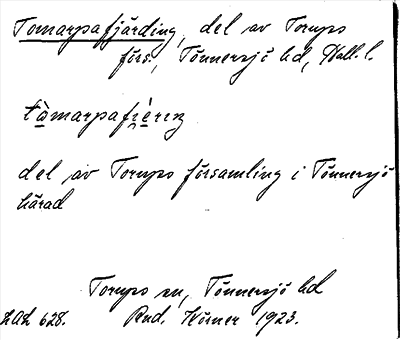 Tomarpafjärding, del av Torups
förs., Tönnersjö hd, Hall. l.
del av Torups församling i Tönnersjö
härad
Torups sn, Tönnersjö hd
628. Rud. Körner 1923.